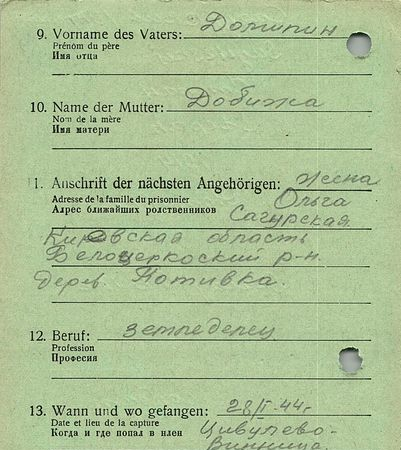 9. Vorname des Vaters: Дотипин
Prénom du père
Имя отца
10. Name der Mutter: Добижа
Nom de la mère
Имя матери
11. Anschrift der nächsten Angehörigen: жена
Adresse de la famille du prisonnier Ольга
Адрес ближайших родственников Сагурская
Киевская область
Белоцеркоский р-н.
Дерев. Потивка.
12. Beruf: земледелец
Profession
Професия
13. Wann und wo gefangen: 28/I-44г
Date et lieu de la capture Цивулево-
Когда и где попал в плен Винница.